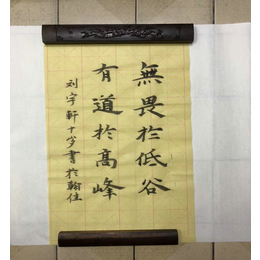 無畏於低谷
有道於高峰
刘宇軒十岁書於翰佳